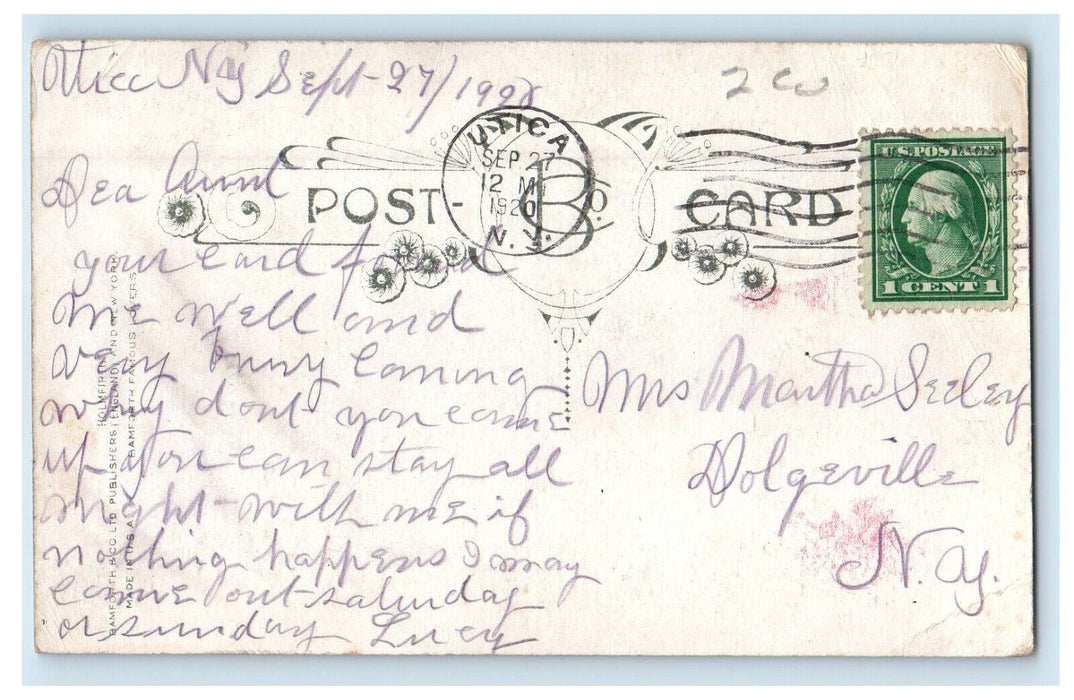 Utica NY Sept-27/1920
200
UTICA
SEP 27
12 M
1920
N.Y.
POST-CARD
B & Co.
U.S. POSTAGE
1 CENT 1
Dea Aunt
your card found
me well and
very busy Canning
why dont you come
up you can stay all
night-with me if
nothing happens I may
come out-saturday
or sunday Lucy
Mrs Martha Seeley
Dolgeville
N.Y.
HOLMFIRTH
BAMFORTH & CO LTD PUBLISHERS (ENGLAND) AND NEW YORK
MADE IN U.S.A. BAMFORTH FAMOUS COVERS